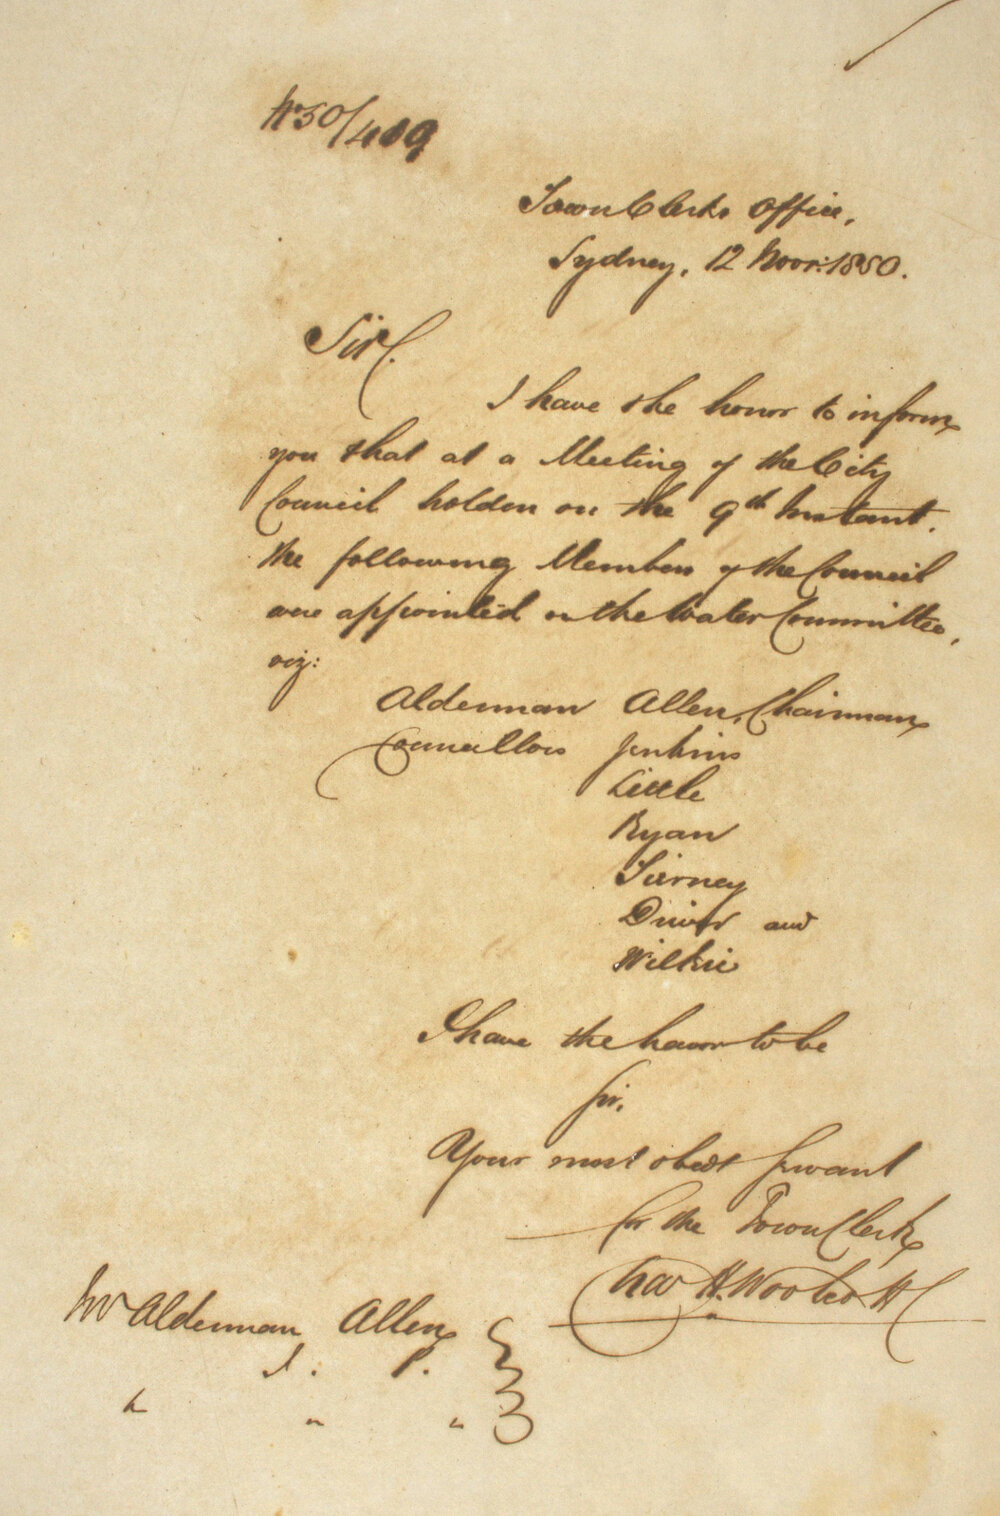 No 50/409
Town Clerks Office,
Sydney, 12 Novr: 1850.
Sir,
I have the honor to inform
you that at a Meeting of the City
Council holden on the 9th Instant,
the following Members of the Council
were appointed on the Water Committee,
viz:
Alderman Allen, Chairman
Councillors Jenkins
Little
Ryan
Tierney
Driver and
Wilkie
I have the honor to be
Sir,
Your most obedt Servant
for the Town Clerk
Chas H. Woolcott
Mr Alderman Allen
J. P.
" " "